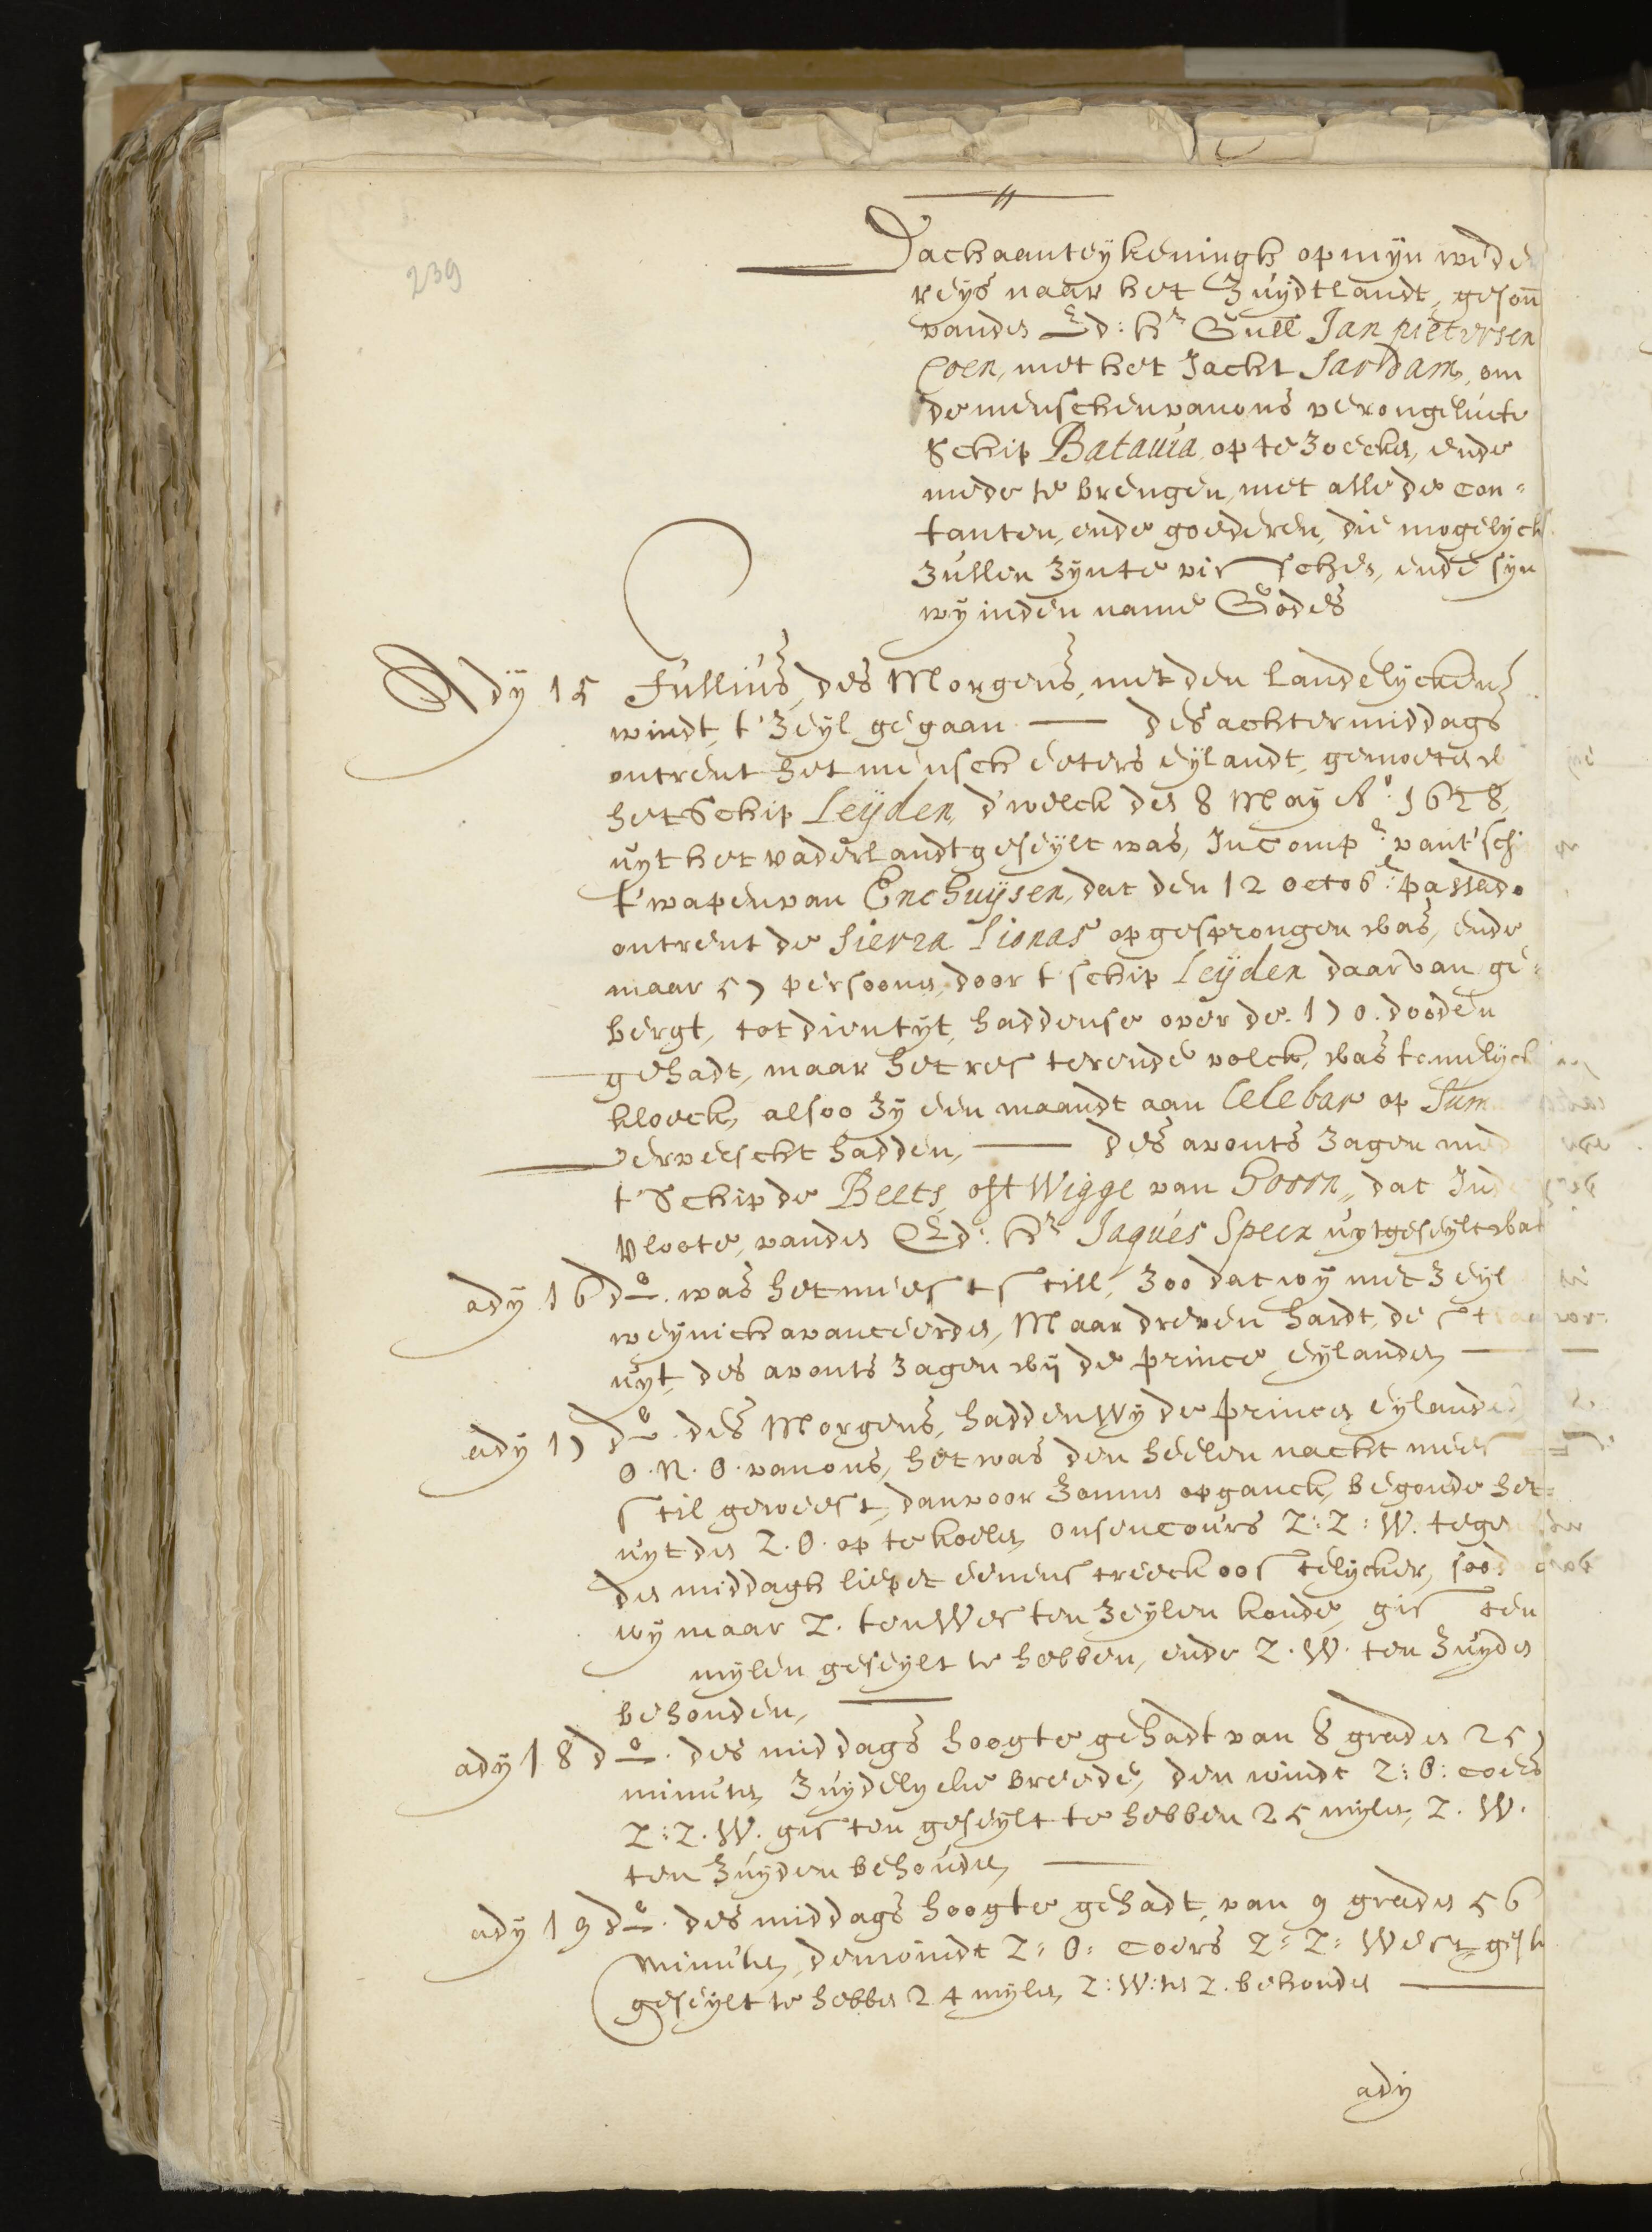 239
Dachaanteykeningh op mijn wede
reys naar het Zuÿdtlandt, geson̄
vanden Ed: Hr Gn̄ll Jan pietersen
Coen, met het Jacht Sardam, om
de menschen van ons verongelucte
Schip Batauia, op te zoecken, ende
mede te brengen, met alle de con=
tanten, ende goederen, die mogelijck
zullen zijn te visschen, ende sijn
wij in den name Godes
Adÿ 15 Jullius, des Morgens, met den Landelycken
windt, t'zeyl gegaan — des achtermiddags
ontrent het menscheeters eylandt, gemoeten w
het Schip Leÿden, d'welck den 8 May Ao: 1628
uyt het vaderlandt geseylt was, In Compe: vant' schi
t'wapen van Enchuÿsen, dat den 12 octobr: passado
ontrent de Sierra Lionas opgesprongen was, ende
maar 57 persoonen, door t' schip Leÿden daar van ge=
bergt, tot dien tyt, haddense over de 170. dooden
gehadt, maar het resterende volck, was temelyck
kloeck, alsoo zy een maandt aan Celebar op Sum
ververscht hadden, — des avonts zagen med
t'Schip de Beets oft Wigge van Hoorn,, dat In de
vloote, vanden Ed: Hr Jaques Specx uytgeseylt wat
ady 16 do. was het meest still, zoo dat wy met zeyl
weynich avanceerden, Maar dreven hardt, de stra
uyt, des avonts zagen wij de prince eylanden —
ady 17 do. des Morgens, hadden Wy de princen eylande
O. N. O. van ons, het was den heelen nacht mees
stil geweest, dan voor zonnen opganck, begonde het=
uyt den Z. O. op te koelen, onsen Cours Z: Z: W. tege
den middagh liepet eenen streeck oostelycker, soo d
wy maar Z. ten Westen zeylen konde, gisten
mylen geseylt te hebben, ende Z. W. ten Zuyden
behouden, —
ady 18 do. des middags hoogte gehadt van 8 graden 25
minuten, Zuydelycke breede, den windt Z: O: coers
Z: Z. W. gisten geseylt te hebben 25 mylen, Z. W.
ten Zuyden behouden, —
ady 19 do. des middags hoogte gehadt, van 9 graden 56
Minuten, den windt Z: O: coers Z: Z: West, gist
geseylt te hebben 24 mylen, Z: W: ten Z. behouden —
ady